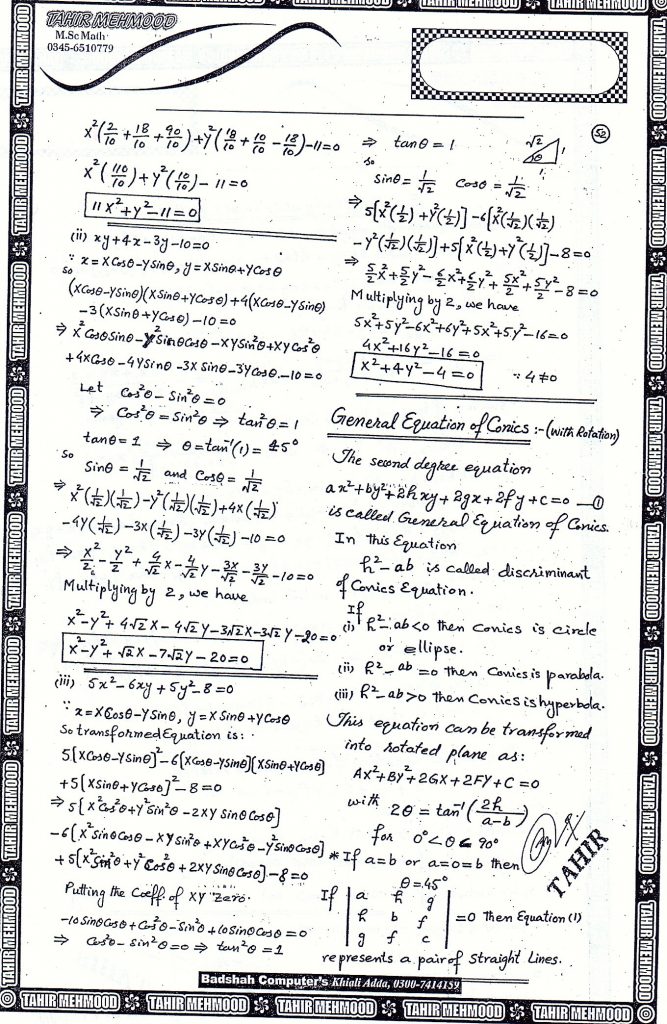 TAHIR MEHMOOD
M.Sc Math
0345-6510779
x²(2/10 + 18/10 + 90/10) + y²(18/10 + 10/10 - 18/10) - 11 = 0
x²(110/10) + y²(10/10) - 11 = 0
11x² + y² - 11 = 0
(ii) xy + 4x - 3y - 10 = 0
∵ x = XCosθ - YSinθ, y = XSinθ + YCosθ
so
(XCosθ - YSinθ)(XSinθ + YCosθ) + 4(XCosθ - YSinθ)
- 3(XSinθ + YCosθ) - 10 = 0
⇒ X²CosθSinθ - Y²SinθCosθ - XYSin²θ + XYCos²θ
+ 4XCosθ - 4YSinθ - 3XSinθ - 3YCosθ - 10 = 0
Let Cos²θ - Sin²θ = 0
⇒ Cos²θ = Sin²θ ⇒ tan²θ = 1
tanθ = 1 ⇒ θ = tan⁻¹(1) = 45°
So
Sinθ = 1/√2 and Cosθ = 1/√2
⇒ X²(1/√2)(1/√2) - Y²(1/√2)(1/√2) + 4X(1/√2)
- 4Y(1/√2) - 3X(1/√2) - 3Y(1/√2) - 10 = 0
⇒ X²/2 - Y²/2 + 4/√2 X - 4/√2 Y - 3X/√2 - 3Y/√2 - 10 = 0
Multiplying by 2, we have
X² - Y² + 4√2 X - 4√2 Y - 3√2 X - 3√2 Y - 20 = 0
X² - Y² + √2 X - 7√2 Y - 20 = 0
(iii) 5x² - 6xy + 5y² - 8 = 0
∵ x = XCosθ - YSinθ, y = XSinθ + YCosθ
So transformed Equation is:
5[XCosθ - YSinθ]² - 6[XCosθ - YSinθ][XSinθ + YCosθ]
+ 5[XSinθ + YCosθ]² - 8 = 0
⇒ 5[X²Cos²θ + Y²Sin²θ - 2XY SinθCosθ]
- 6[X²SinθCosθ - XYSin²θ + XYCos²θ - Y²SinθCosθ]
+ 5[X²Sin²θ + Y²Cos²θ + 2XYSinθCosθ] - 8 = 0
Putting the Coeff. of XY Zero.
-10SinθCosθ + Cos²θ - Sin²θ + 10SinθCosθ = 0
⇒ Cos²θ - Sin²θ = 0 ⇒ tan²θ = 1
52
⇒ tanθ = 1
√2 1
θ
1
so
Sinθ = 1/√2 Cosθ = 1/√2
⇒ 5[X²(1/2) + Y²(1/2)] - 6[X²(1/√2)(1/√2)
- Y²(1/√2)(1/√2)] + 5[X²(1/2) + Y²(1/2)] - 8 = 0
⇒ 5/2 X² + 5/2 Y² - 6/2 X² + 6/2 Y² + 5X²/2 + 5Y²/2 - 8 = 0
Multiplying by 2, we have
5X² + 5Y² - 6X² + 6Y² + 5X² + 5Y² - 16 = 0
4X² + 16Y² - 16 = 0
X² + 4Y² - 4 = 0 ∵ 4 ≠ 0
General Equation of Conics :- (with Rotation)
The second degree equation
ax² + by² + 2hxy + 2gx + 2fy + c = 0 — (1)
is called General Equation of Conics.
In this Equation
h² - ab is called discriminant
of Conics Equation.
If
(i) h² - ab < 0 then Conics is circle
or ellipse.
(ii) h² - ab = 0 then Conics is parabola.
(iii) h² - ab > 0 then Conics is hyperbola.
This equation can be transformed
into rotated plane as:
AX² + BY² + 2GX + 2FY + C = 0
with 2θ = tan⁻¹(2h/a-b)
for 0° < θ < 90°
* If a = b or a = 0 = b then
θ = 45°
TAHIR
If | a h g |
| h b f | = 0 then Equation (1)
| g f c |
represents a pair of Straight Lines.
Badshah Computer's Khiali Adda, 0300-7414159
TAHIR MEHMOOD TAHIR MEHMOOD TAHIR MEHMOOD TAHIR MEHMOOD TAHIR MEHMOOD